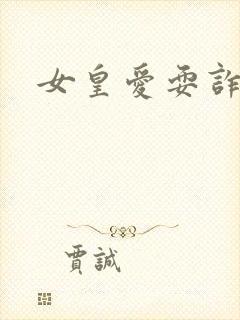 女皇愛耍詐
賈誠